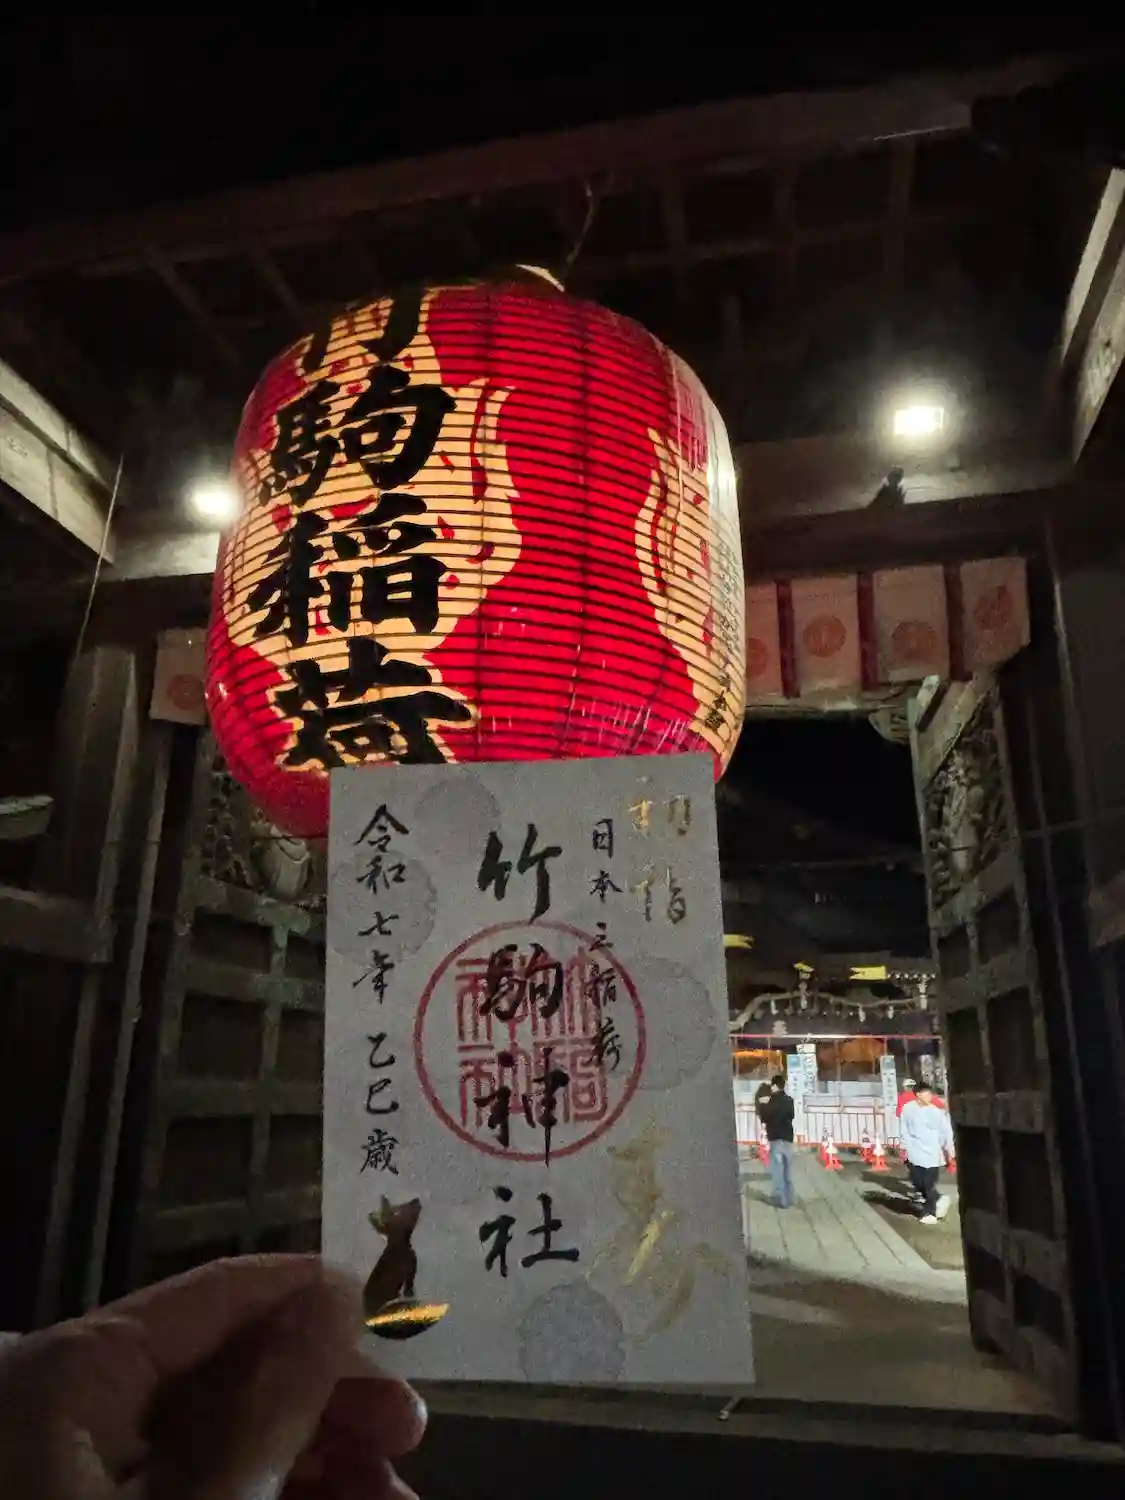 竹駒稲荷
初詣
日本三稲荷
寿
竹駒神社
令和七年 乙巳歳